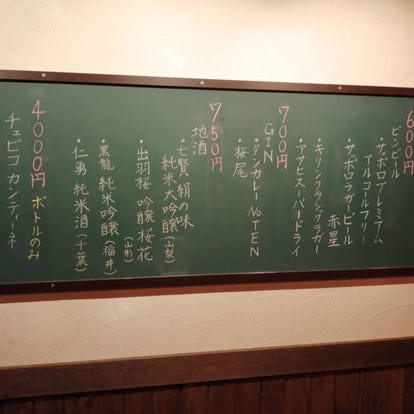 600円
ビンビール
・サッポロプレミアム
アルコールフリー
・サッポロラガービール
赤星
・キリンクラシックラガー
・アサヒスーパードライ
700円
GIN
・タンカレーNo.TEN
・桜尾
750円
地酒
・七賢 絹の味
純米大吟醸(山梨)
・出羽桜 吟醸 桜花
(山形)
・黒龍 純米吟醸(福井)
・仁勇 純米酒(千葉)
4000円 ボトルのみ
チェビコ カンティーネ